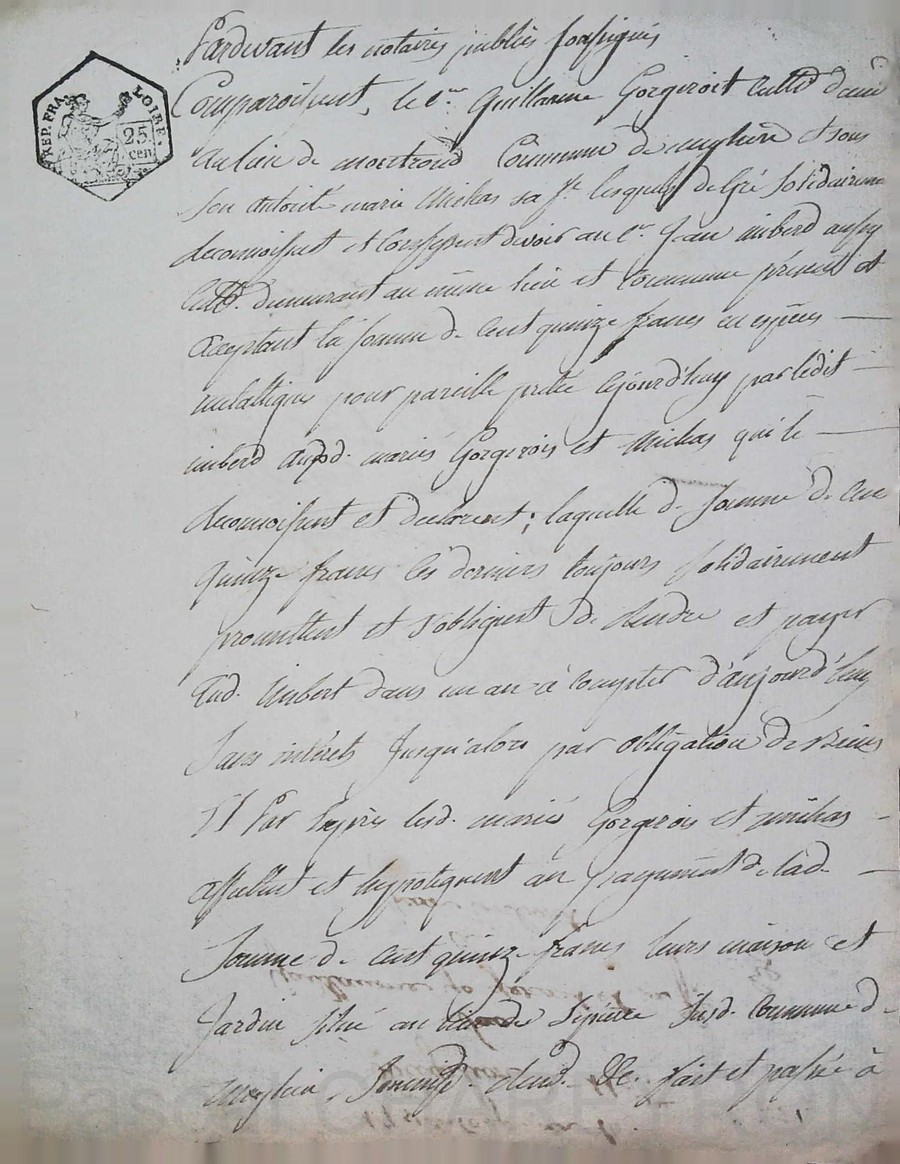 REP. FRA. LOIRE.
25 cen
Pardevant les notaires publics soussignés
Comparoissent, le Cen Guillaume Gorgeroit Cultr dem
au lieu de montrond Commune de et sous
son autorité marie Michas sa fe lesquels de Gré solidairement
reconnoissent et Confessent devoir au Cen Jean imberd aussy
Cultr. demeurant au même lieu et Commune présent et
acceptant la somme de Cent quinze francs en espèces
métalliques pour pareille prêtée cejourd'huy par ledit
imberd auxd. mariés Gorgerois et Michas qui le
reconnoissent et declarent; laquelle d. somme de Cent
quinze francs ces derniers toujours solidairement
promettent et s'obligent de Rendre et payer
aud. imbert dans un an à compter d'aujourd'huy
sans intérêts jusqu'alors par obligation de Biens
Et Par Exprès lesd. mariés Gorgerois et michas
affectent et hypotequent au payement de lad.
somme de cent quinze francs leurs maison et
Jardin situé au susd. Commune de
fait et passé à